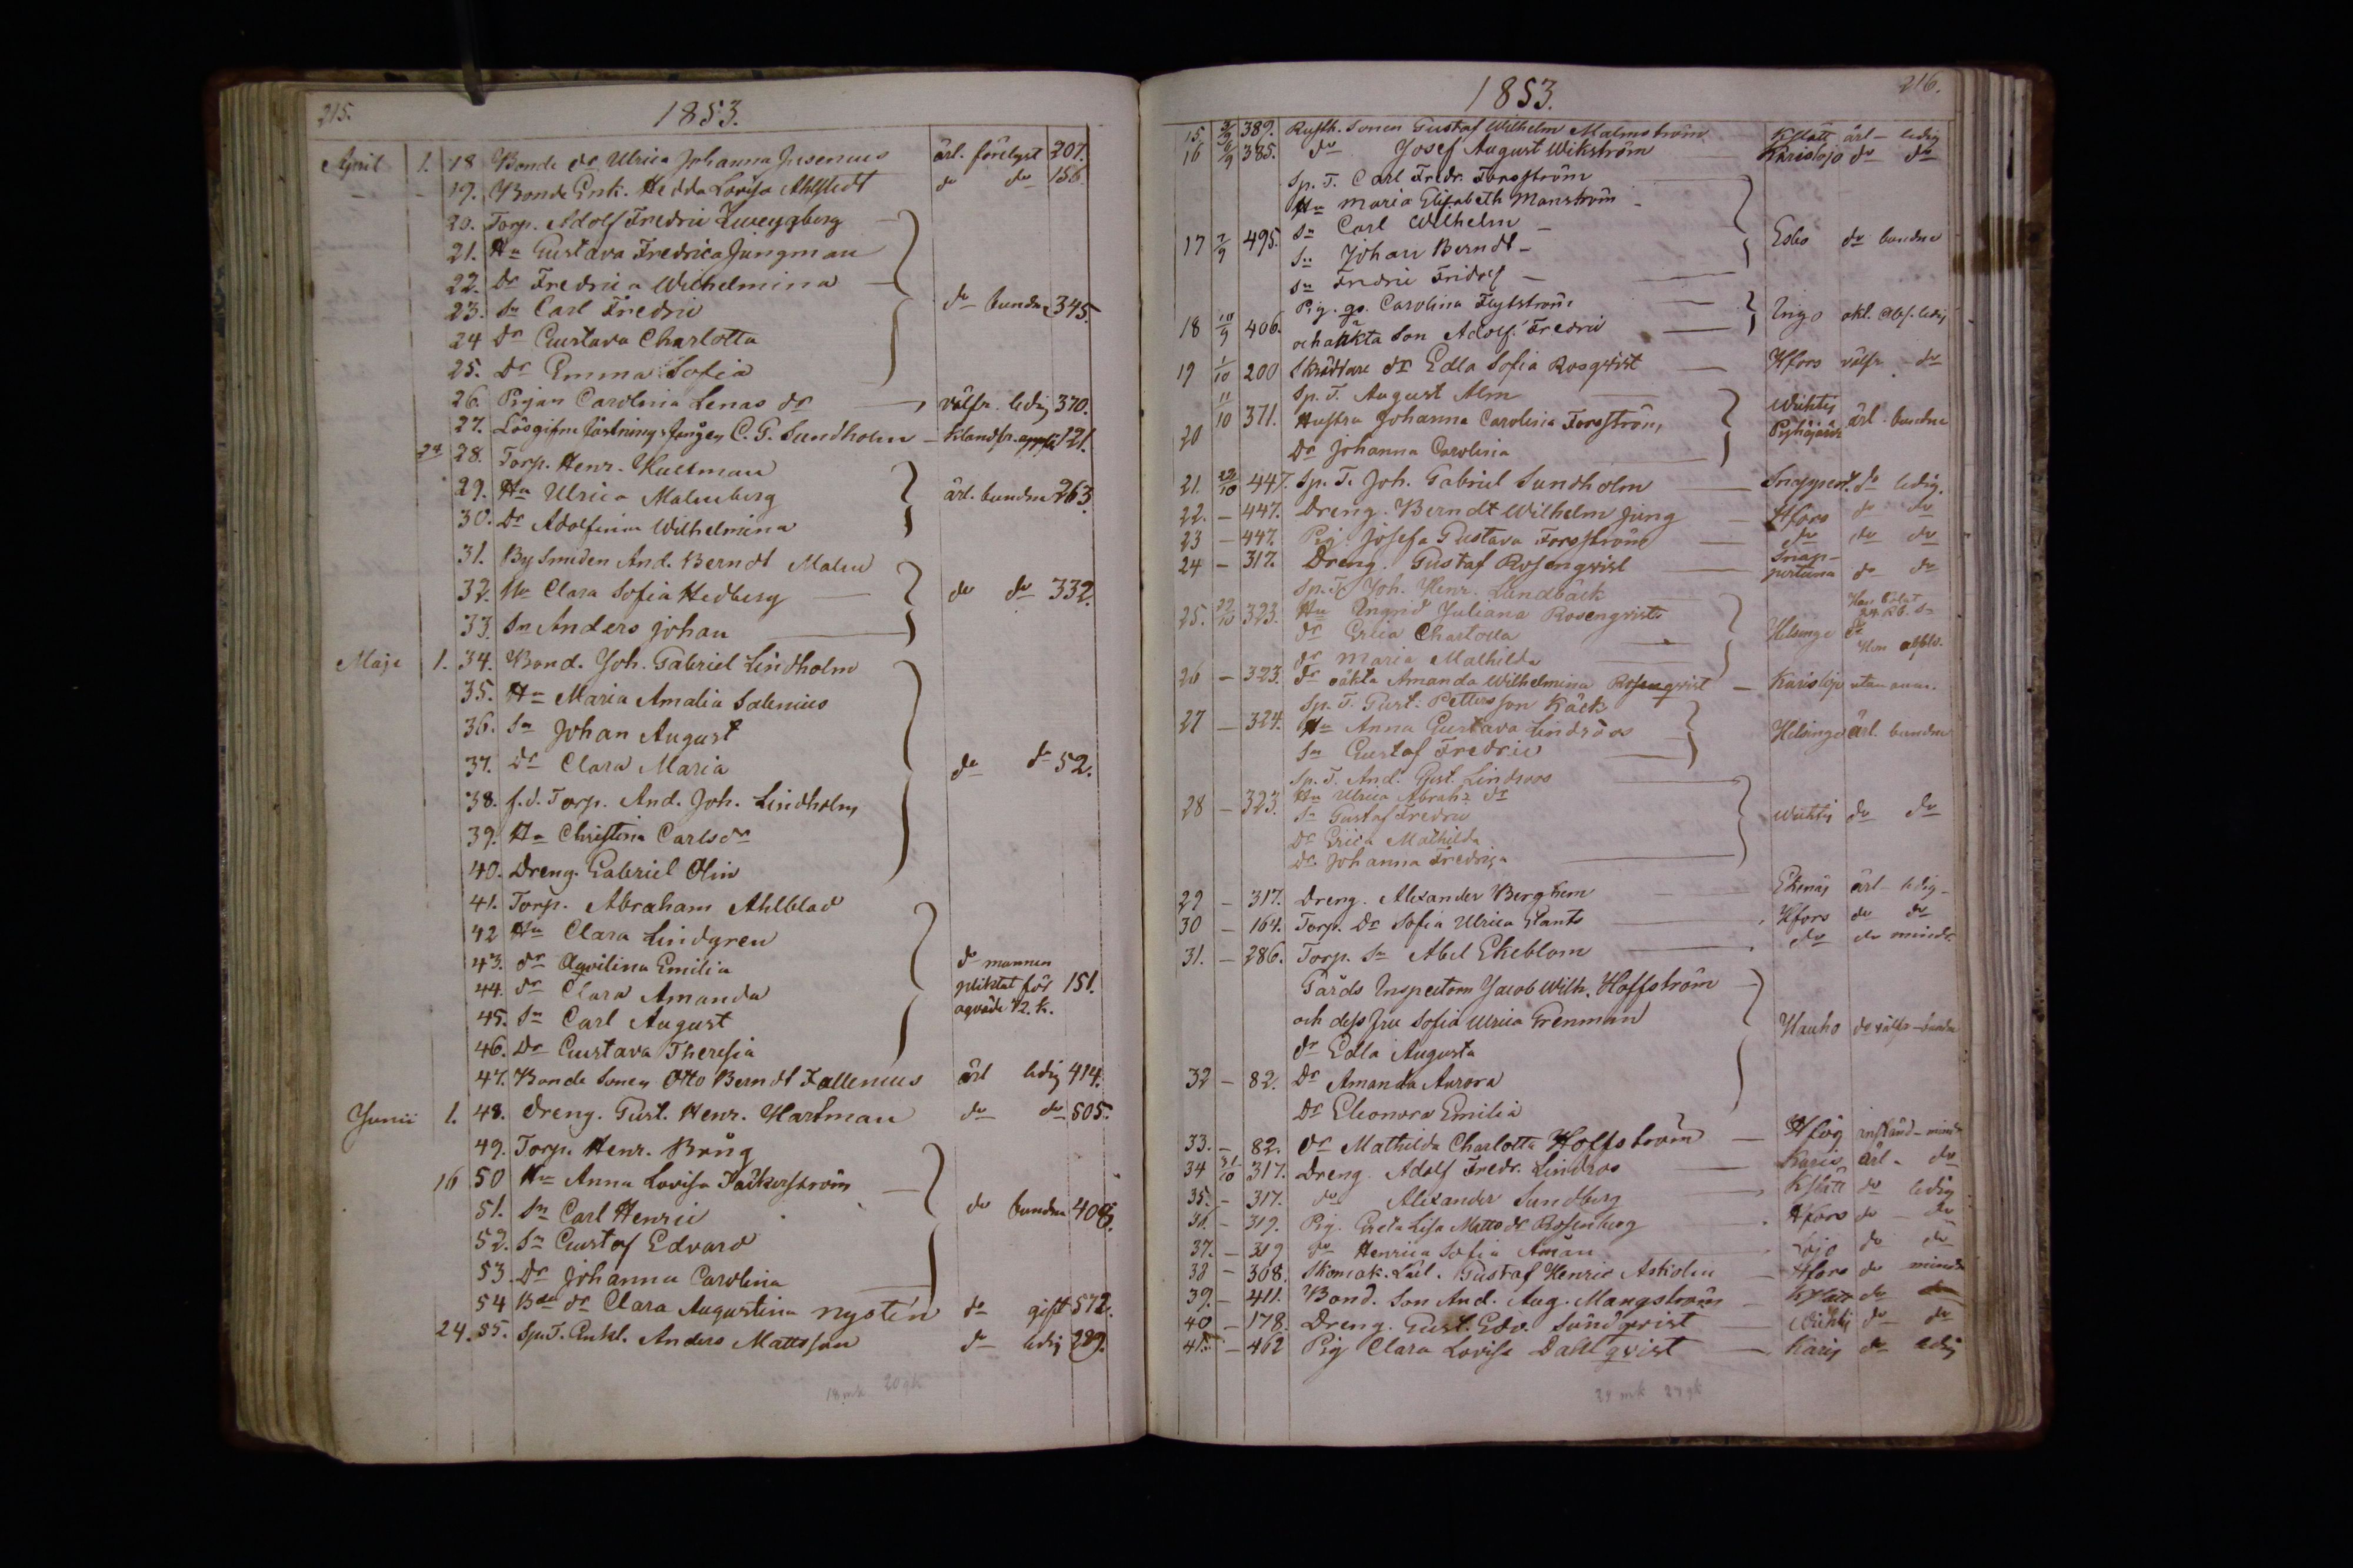 215.
1853.
April 1. 18 Bonde dr Ulrica Johanna Jusenius ärl. förelyst 207.
- - 19. Bonde Enk. Hedda Lovisa Ahlstedt do do 156.
20. Torp. Adolf Fredric Zweygberg
21. Hu Gustava Fredrica Jungman
22. Dr Fredrica Wilhelmina
23. Sn Carl Fredric do bundne 345.
24 Dr Gustava Charlotta
25. Dr Emma Sofia
26. Pigan Carolina Lenas dr välfr. ledig 370.
27. Lösgifne fästnings fången C. G. Sundholm 121.
24 28. Torp. Henr. Kullman
29. Hu Ulrica Malmberg ärl. bundne 263.
30. Dr Adolfina Wilhelmina
31. By Smeden And. Berndt Malm
32. Hu Clara Sofia Hedberg do do 332.
33. Sn Anders Johan
Maji 1. 34. Bond. Joh. Gabriel Lindholm
35. Hu Maria Amalia Salenius
36. Sn Johan August
37. Dr Clara Maria do do 52.
38. f.d. Torp. And. Joh. Lindholm
39. Hu Christina Carls dr
40. Dreng. Gabriel Olin
41. Torp. Abraham Ahlblad
42 Hu Clara Lindgren
43. dr Aqvilina Emilia do mannen
44. dr Clara Amanda pliktat för 151.
45. Sn Carl August oqväde 12. k.
46. Dr Gustava Theresia
47. Bonde Sonen Otto Berndt Fallenius ärl ledig 414.
Junii 1. 48. Dreng. Gust. Henr. Hartman do do 505.
49. Torp. Henr. Brüg
16 50 Hu Anna Lovisa Fäckerström
51. Sn Carl Henric do bundna 408.
52. Sn Gustaf Edvard
53. Dr Johanna Carolina
54 Bde dr Clara Augustina Nystén do gift 572.
24. 55. Sp. T. Enkl. Anders Mattsson do ledig 289.
18 mk 20 gk
1853.
216.
15. 389. Rusth. Sonen Gustaf Wilhelm Malmström Kslätt ärl - ledig
16 6/9 385. do Josef August Wikström Karislojo do do
Sp. T. Carl Fredr. Forsström
Hu Maria Elisabeth Manström
17 7/9 495. Sn Carl Wilhelm
Sn Johan Berndt Esbo do bundne
Sn Fredric Fridolf
Pig. qv. Carolina Flytström
18 10/9 406. och oäkta Son Adolf Fredric Ingo
19 1/10 200 Skräddare dr Edla Sofia Rosqvist Hfors välfr. do
Sp. T. August Alm
11/10 371. Hustru Johanna Carolina Forsström Wichtis
20 Pyhäjärvi ärl. bundne
Dr Johanna Carolina
21. 22/10 447. Sp. T. Joh. Gabriel Sundholm Snappert. do ledig.
22. - 447. Dreng. Berndt Wilhelm Jung Hfors do do
23 - 447. Pig. Josefa Gustava Forsström do do do
24 - 317. Dreng. Gustaf Rosenqvist Snappertuna do do
Sp. T. Joh. Henr. Lundbäck
25. 323. Hu Ingrid Juliana Rosenqvist
dr Erica Charlotta Helsinge
dr Maria Mathilda
26 - 323. dr oäkta Amanda Wilhelmina Rosenqvist Karislojo utan anm.
Sp. T. Gust. Pettersson Käck
27 - 324. Hu Anna Gustava Lindroos Helsinge ärl. bundne
Sn Gustaf Fredric
Sp. T. And. Gust. Lindroos
Hu Ulrica Abrah: dr
28 - 323. Sn Gustaf Fredric Wichtis do do
Dr Erica Mathilda
Dr Johanna Fredrica
29 - 317. Dreng. Alexander Berghem Ekenäs ärl - ledig -
30 - 164. Torp. Dr Sofia Ulrica Glants Hfors do do
31. - 286. Torp. Sn Abel Ekeblom do do minderå.
Gårds Inspectorn Jacob Wilh. Hoffström
och dess fru Sofia Ulrica Grenman Hauho do välfr - bundne
dr Edla Augusta
32 - 82. Dr Amanda Aurora
Dr Eleonora Emilia
33. - 82. dr Mathilda Charlotta Hoffström
34 31/10 317. Dreng. Adolf Fredr. Lindroos Karis ärl. do
35. - 317. do Alexander Sundberg Kslätt do ledig
36. - 319. Pig. Greta Lisa Matts dr Rosenberg Hfors do do
37. - 319 do Henrica Sofia Åman Lojo do do
38 - 308. Skomak. Lärl. Gustaf Henric Askolin Hfors do
39. - 411. Bond. Son And. Aug. Mangström Kslätt do do
40 - 178. Dreng. Gust. Edv. Sundqvist Wichtis do do
41. - 462 Pig Clara Lovisa Dahlqvist Karis do ledig